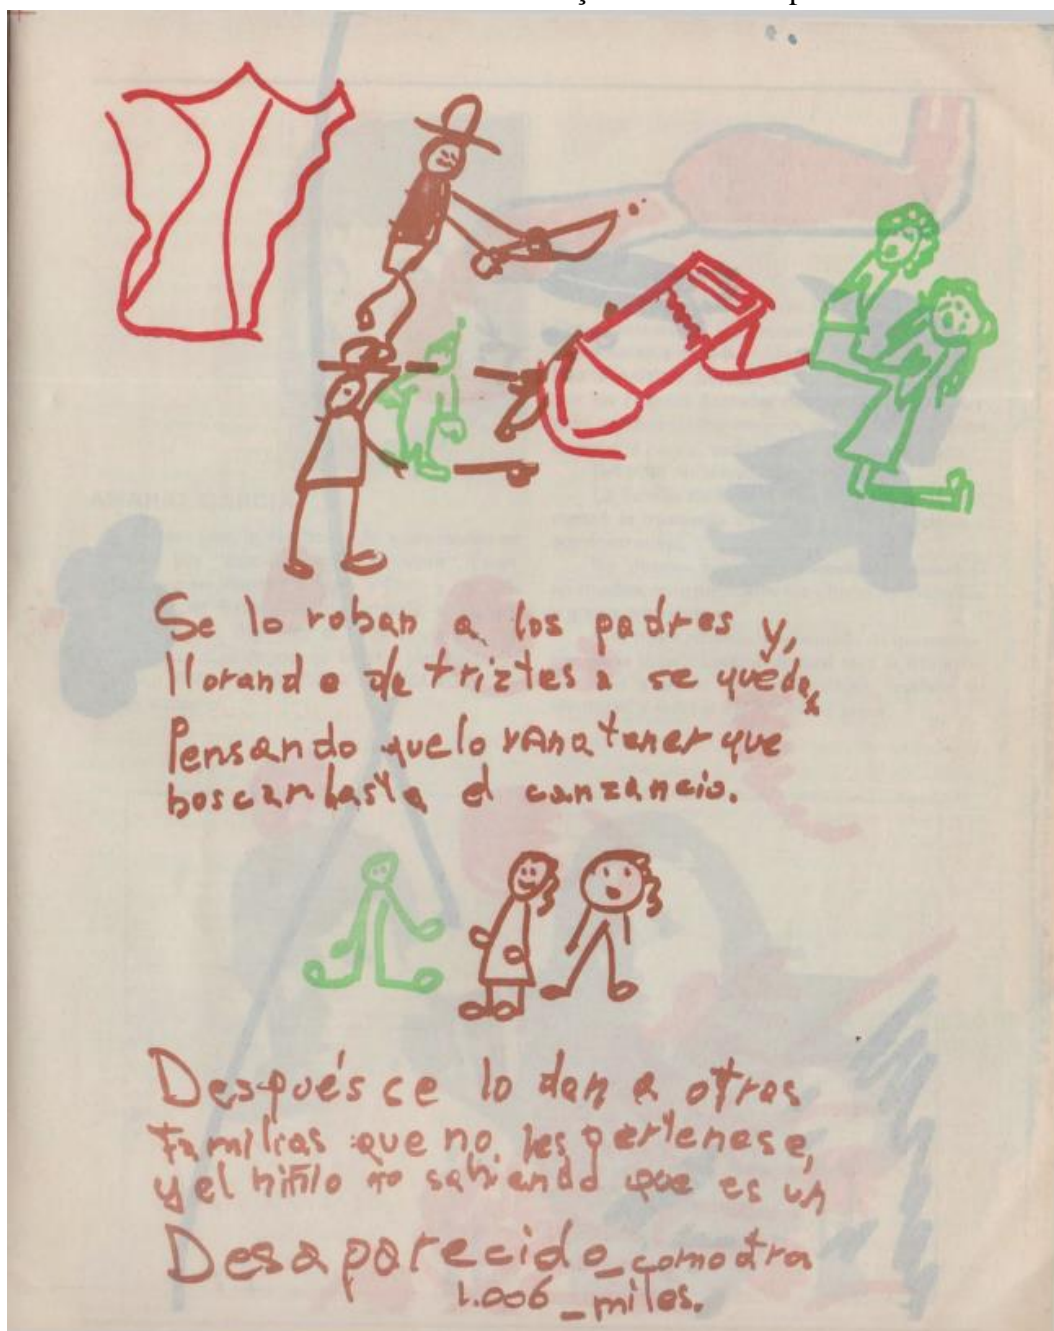 Se lo roban a los padres y,
llorando de triztesa se quedan
Pensando quelo vana tener que
boscarhasta el canzancio.
Después se lo dan a otras
familias que no les pertenese,
y el niño no sabiendo que es un
Desaparecido_como otra
1.006_miles.